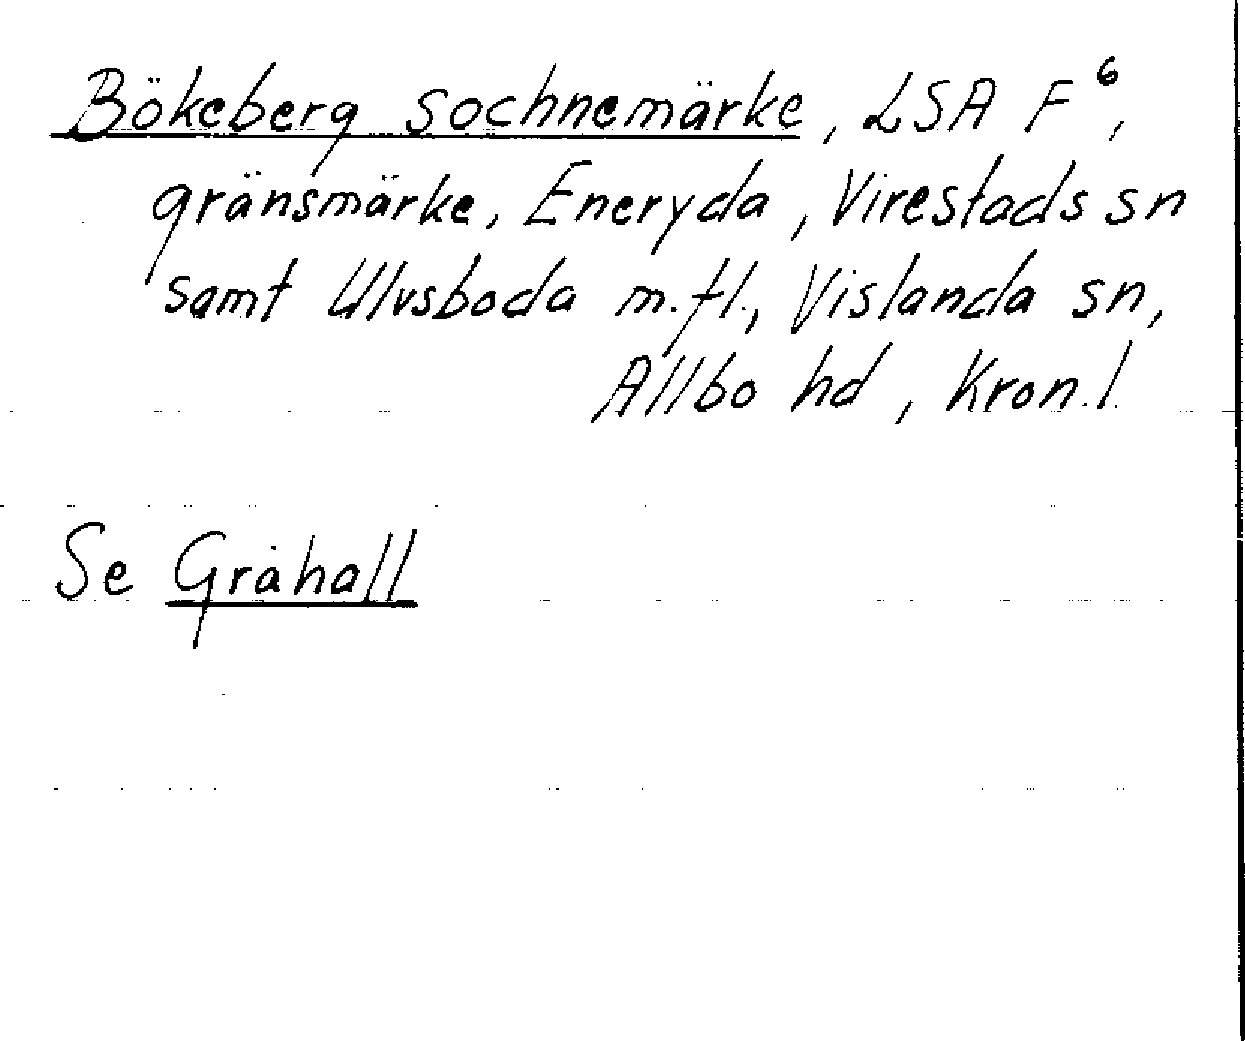 Bökeberg sochnemärke, LSA F⁶,
gränsmärke, Eneryda, Virestads sn
samt Ulvsboda m.fl., Vislanda sn,
Allbo hd, Kron.l.
Se Gråhall